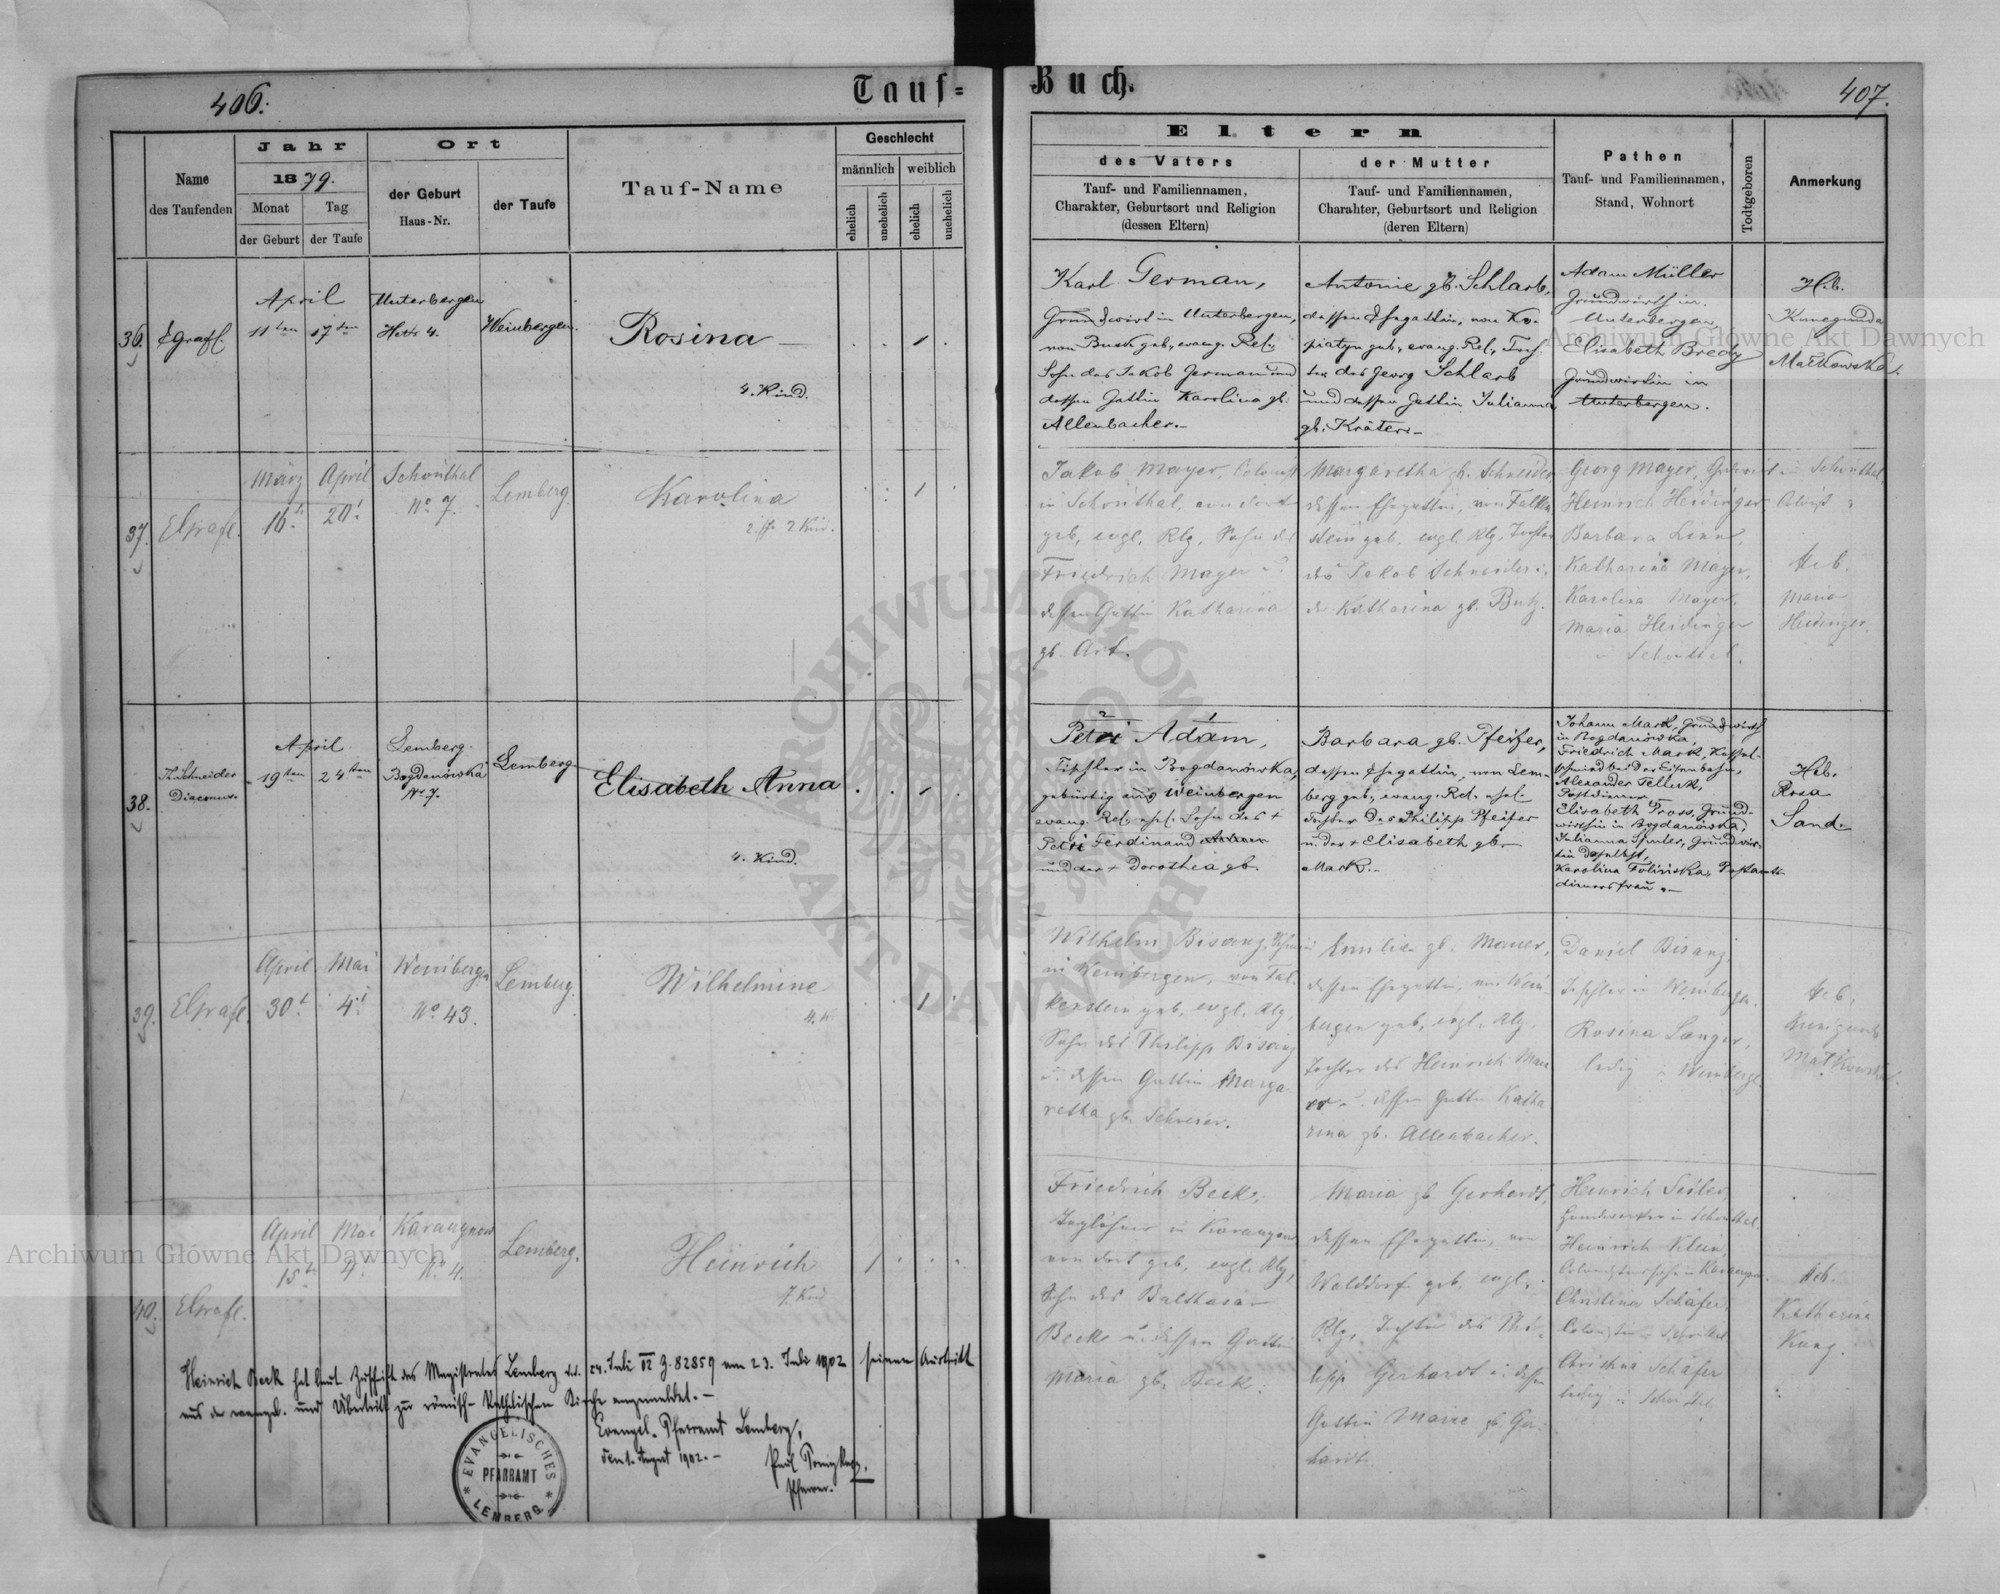 406.
Tauf-Buch.
407.
Name
des Taufenden
Jahr
1879.
Monat
Tag
der Geburt
der Taufe
Ort
der Geburt
Haus-Nr.
der Taufe
Tauf-Name
Geschlecht
männlich
weiblich
ehelich
unehelich
ehelich
unehelich
Eltern
des Vaters
Tauf- und Familiennamen,
Charakter, Geburtsort und Religion
(dessen Eltern)
der Mutter
Tauf- und Familiennamen,
Charahter, Geburtsort und Religion
(deren Eltern)
Pathen
Tauf- und Familiennamen,
Stand, Wohnort
Todtgeboren
Anmerkung
36.
April
11ten
17ten
Unterbergen
4.
Weinbergen.
Rosina
4. Kind.
Karl German,
Grundwirt in Unterbergen,
von Busk geb., evang. Rel.,
Sohn des Jakob German und
dessen Gattin Karolina gb.
Allenbacher.
Antonie gb. Schlarb,
dessen Ehegattin, von Ko-
piatyn geb., evang. Rel., Toch-
ter des Georg Schlarb
und dessen Gattin Julianna
gb. Kräter.
Adam Müller
Grundwirth in
Unterbergen,
Elisabeth Bredy
Grundwirthin in
Unterbergen.
Heb.
Kunegunda
Matkowska.
37.
März
April
16t
20t
Schönthal
No 7.
Lemberg
Karolina
Jakob Mayer, Colonist
in Schönthal, von dort
geb., evgl. Rlg., Sohn des
Friedrich Mayer u.
dessen Gattin Katharina
gb. Art.
Margaretha gb. Schneider
dessen Ehegattin, von Falken
stein geb. evgl. Rlg. Tochter
des Jakob Schneider u.
der Katharina gb. Butz.
Georg Mayer,
in Schönthal
Heinrich Heidinger
Colonist
Barbara
Katharina Mayer,
Karolina Mayer,
Maria Heidinger
in Schönthal.
Heb.
Maria
Heidinger.
38.
Schneider
Diaconus.
April
19ten
24ten
Lemberg
Bogdanówka
No 7.
Lemberg
Elisabeth Anna
4. Kind.
2 1
Petri Adam,
Tischler in Bogdanówka,
gebürtig aus Weinbergen
evang. Rel. ehel. Sohn des †
Petri Ferdinand
und der † Dorothea gb.
Barbara gb. Pfeifer,
dessen Ehegattin, von Lem-
berg geb., evang. Rel. ehel.
Tochter des Philipp Pfeifer
u. der † Elisabeth gb.
Mark.
Johann Mark, Grundwirth
in Bogdanówka,
Friedrich Mark, Kessel-
schmied bei der Eisenbahn,
Alexander
Postdiener
Elisabeth Pross, Grund-
wirthin in Bogdanówka,
Julianna Grundwir-
tin daselbst,
Karolina Postamts-
dienersfrau.
Heb.
Rosa
Sand.
39.
April
Mai
30t
4t
Weinbergen
No 43.
Lemberg.
Wilhelmine
4. K.
Wilhelm Bisanz,
in Weinbergen, von Fal-
kenstein geb., evgl. Rlg.,
Sohn des Philipp Bisanz
u. dessen Gattin Marga-
retha gb. Schreier.
Emilie gb. Mauer,
dessen Ehegattin, von Wein-
bergen geb., evgl. Rlg.
Tochter des Heinrich Mau
er u. dessen Gattin Katha
rina gb. Allenbacher.
Daniel Bisanz
Tischler in Weinbergen.
Rosina Langer,
ledig in Weinbergen.
Heb.
Kunigunde
Matkowska.
40.
April
Mai
15t
Karaczynow
No 4.
Lemberg.
Heinrich
7. Kind
Friedrich Beck,
Taglöhner in
von dort geb., evgl. Rlg.,
Sohn des Balthasar
Beck u. dessen Gattin
Maria gb. Beck.
Maria gb. Gerhardt,
dessen Ehegattin, von
Walddorf geb. evgl.
Rlg. Tochter des Phi-
lipp Gerhardt u. dessen
Gattin Marie gb. Ger-
hardt.
Heinrich Seiler,
in Schönthal
Heinrich Klein,
Christina Schäfer,
Christina Schäfer
ledig
Heb.
Katharina
Heinrich Beck hat laut Zuschrift des Magistrates Lemberg d.d. 24. Juli Z. 82859 am 23. Juli 1902 seinen Austritt
aus der evangel. und Übertritt zur römisch-katholischen Kirche angemeldet.
Evangel. Pfarramt Lemberg,
den 1. August 1902.
Pfarrer.
EVANGELISCHES
PFARRAMT
LEMBERG
Archiwum Główne Akt Dawnych
Archiwum Główne Akt Dawnych
ARCHIWUM GŁÓWNE AKT DAWNYCH